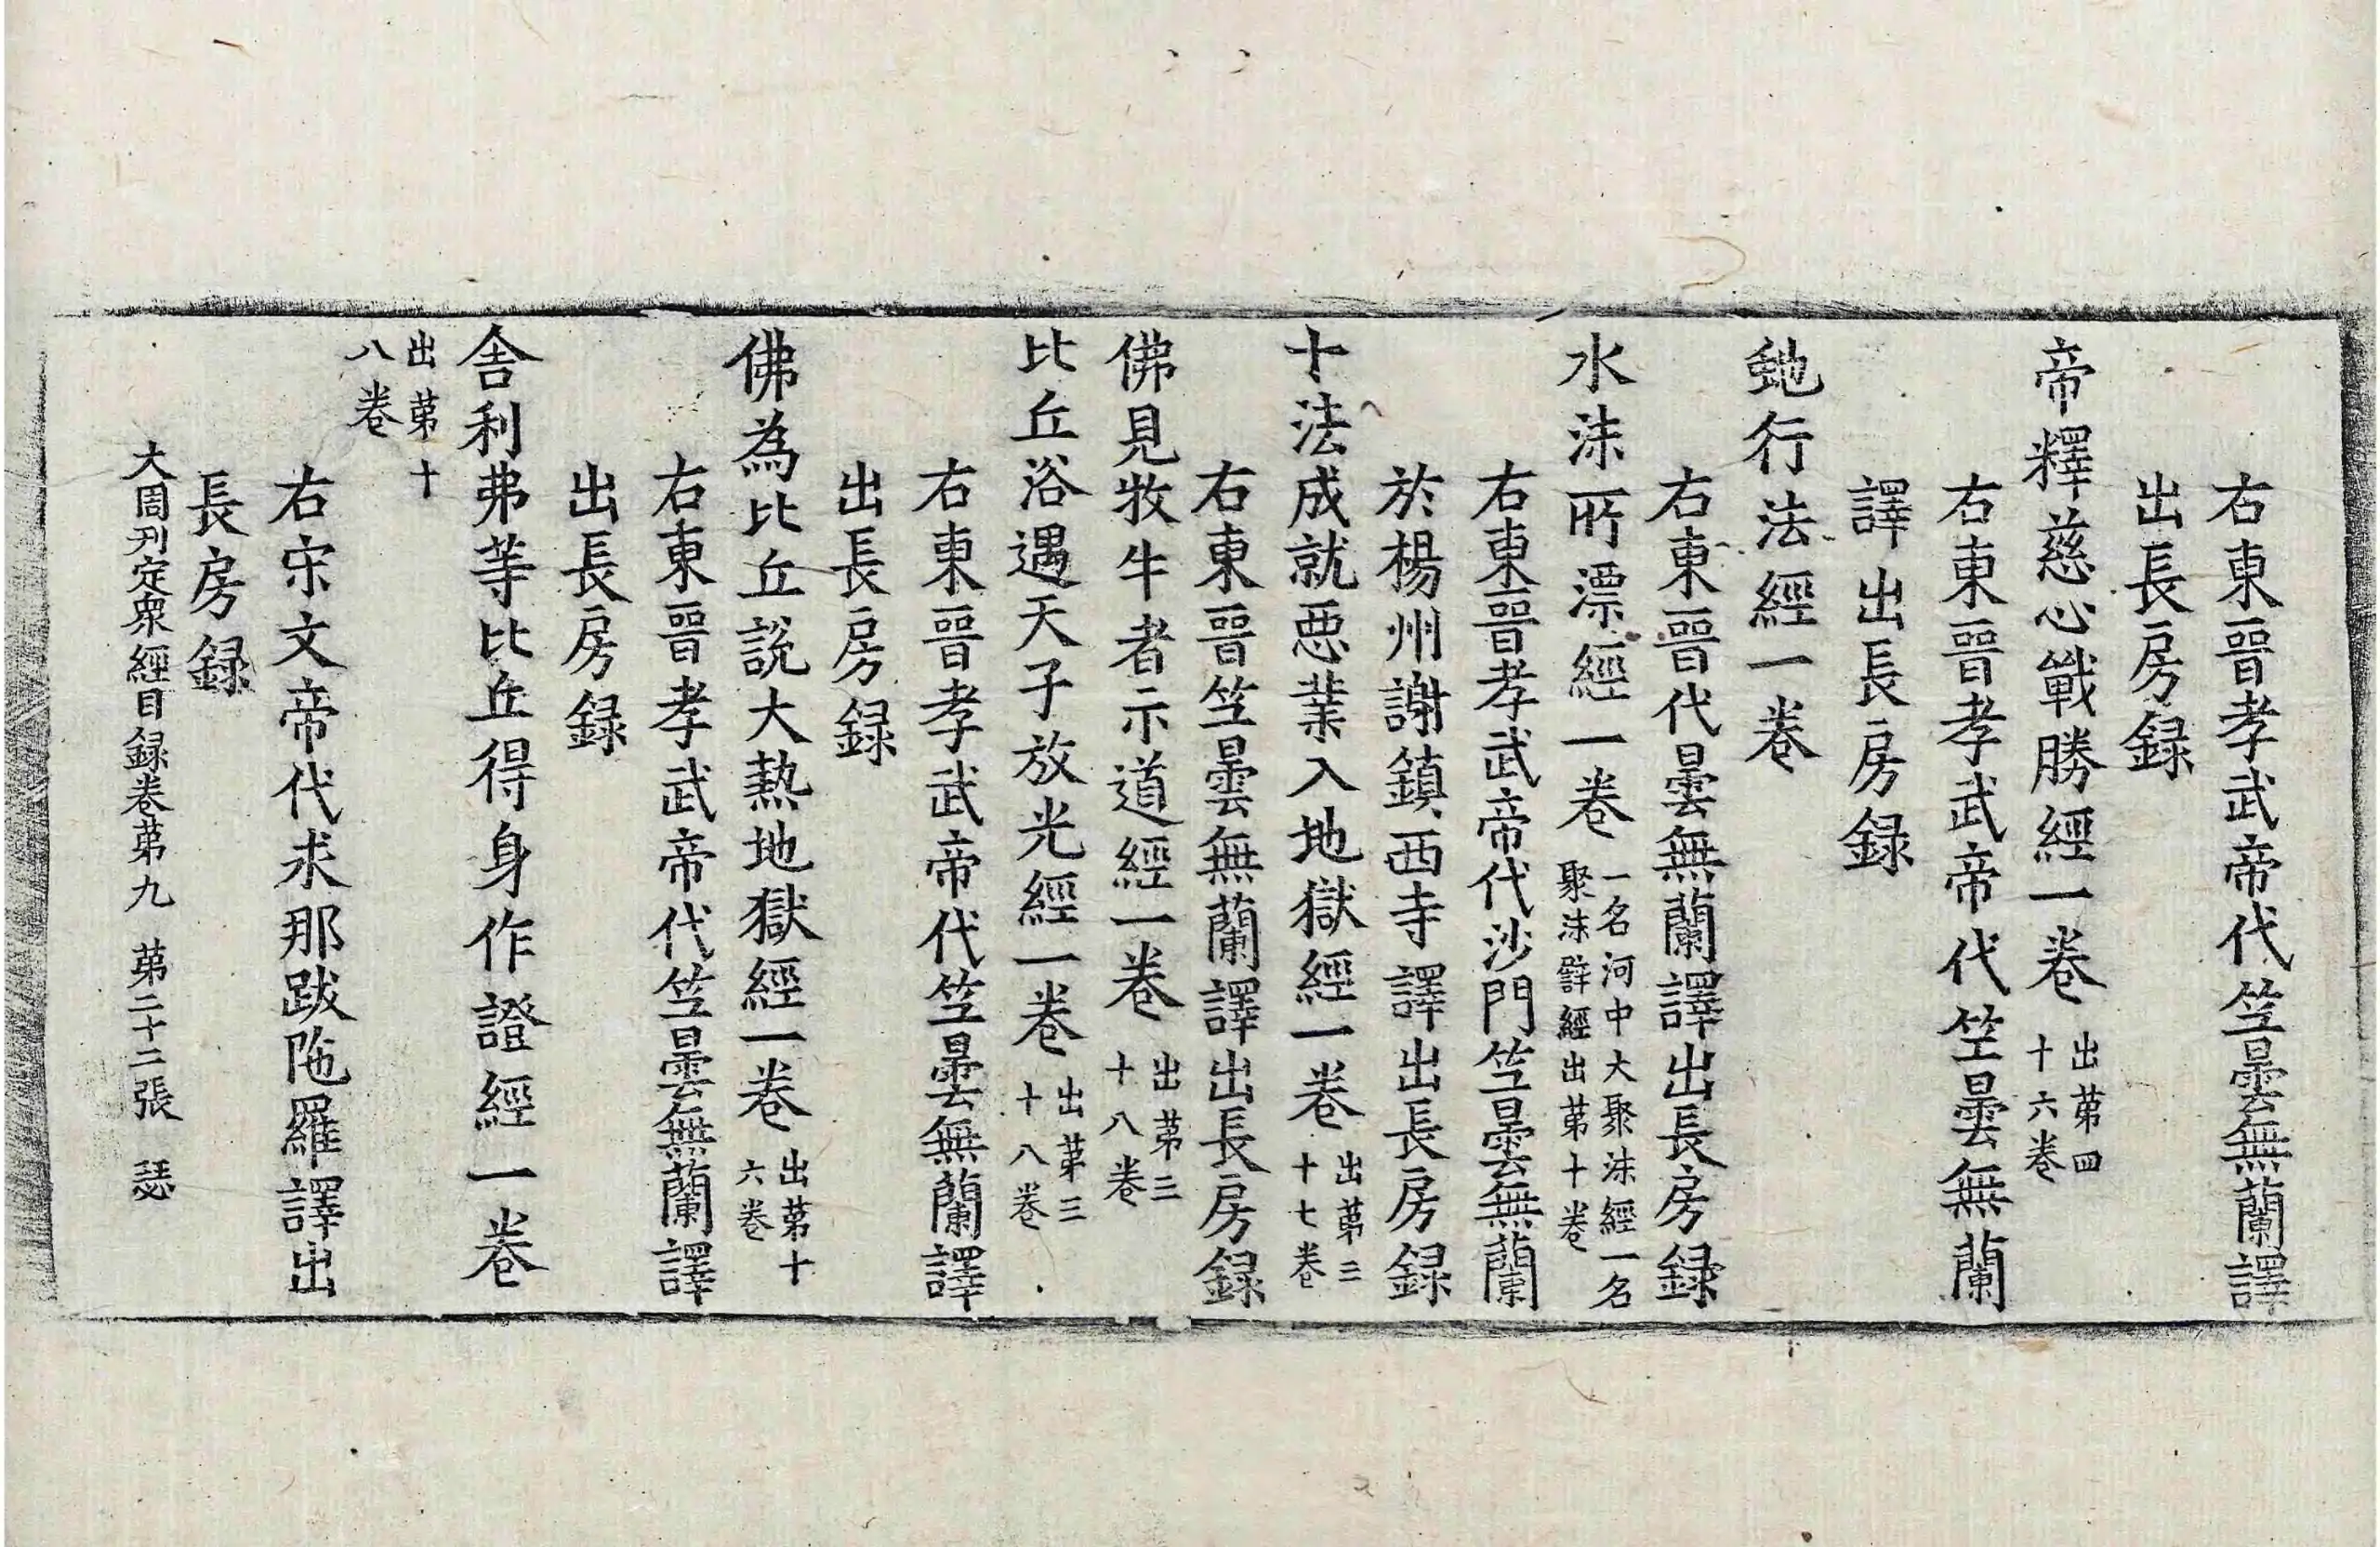 右東晉孝武帝代竺曇無蘭譯
出長房録
帝釋慈心戰勝經一卷
出第四
十六卷
右東晉孝武帝代竺曇無蘭
譯出長房録
虵行法經一卷
右東晉代曇無蘭譯出長房録
水沫所漂經一卷
一名河中大聚沫經一名
聚沫譬經出第十卷
右東晉孝武帝代沙門竺曇無蘭
於楊州謝鎮西寺譯出長房録
十法成就惡業入地獄經一卷
出第三
十七卷
右東晉竺曇無蘭譯出長房録
佛見牧牛者示道經一卷
出第三
十八卷
比丘浴遇天子放光經一卷
出第三
十八卷
右東晉孝武帝代竺曇無蘭譯
出長房録
佛為比丘說大熱地獄經一卷
出第十
六卷
右東晉孝武帝代竺曇無蘭譯
出長房録
舎利弗等比丘得身作證經一卷
出第十
八卷
右宋文帝代求那跋陁羅譯出
長房録
大周刋定衆經目録卷第九 第二十二張 瑟